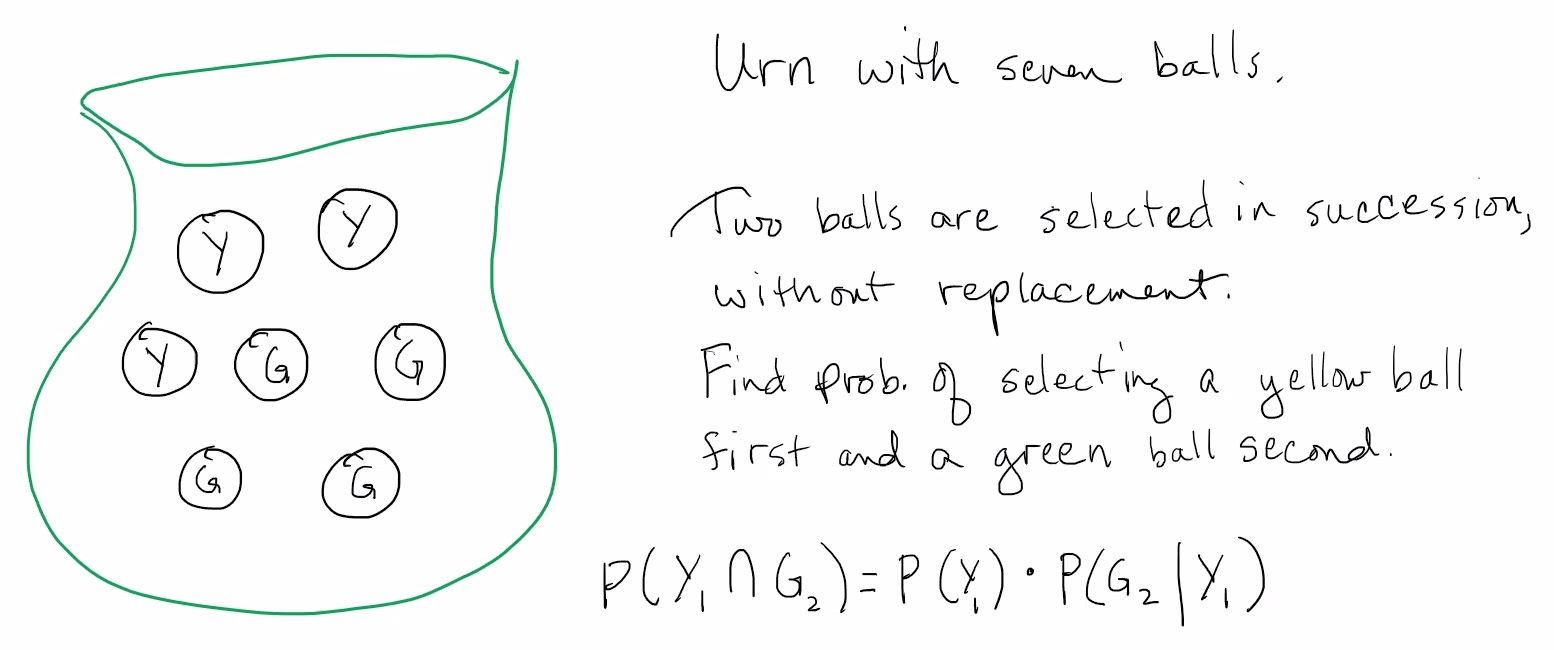 Urn with seven balls.
Two balls are selected in succession,
without replacement.
Find prob. of selecting a yellow ball
first and a green ball second.
P(Y₁ ∩ G₂) = P(Y₁) · P(G₂ | Y₁)
Y Y
Y G G
G G